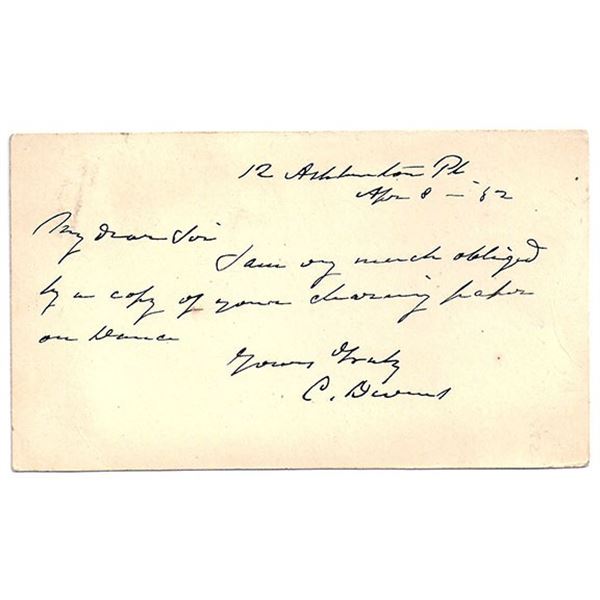 12 Ashburton Pl
Apr 8 – '82
My dear Sir
I am very much obliged
by a copy of your charming paper
on Dance
Yours Truly
C. Devens